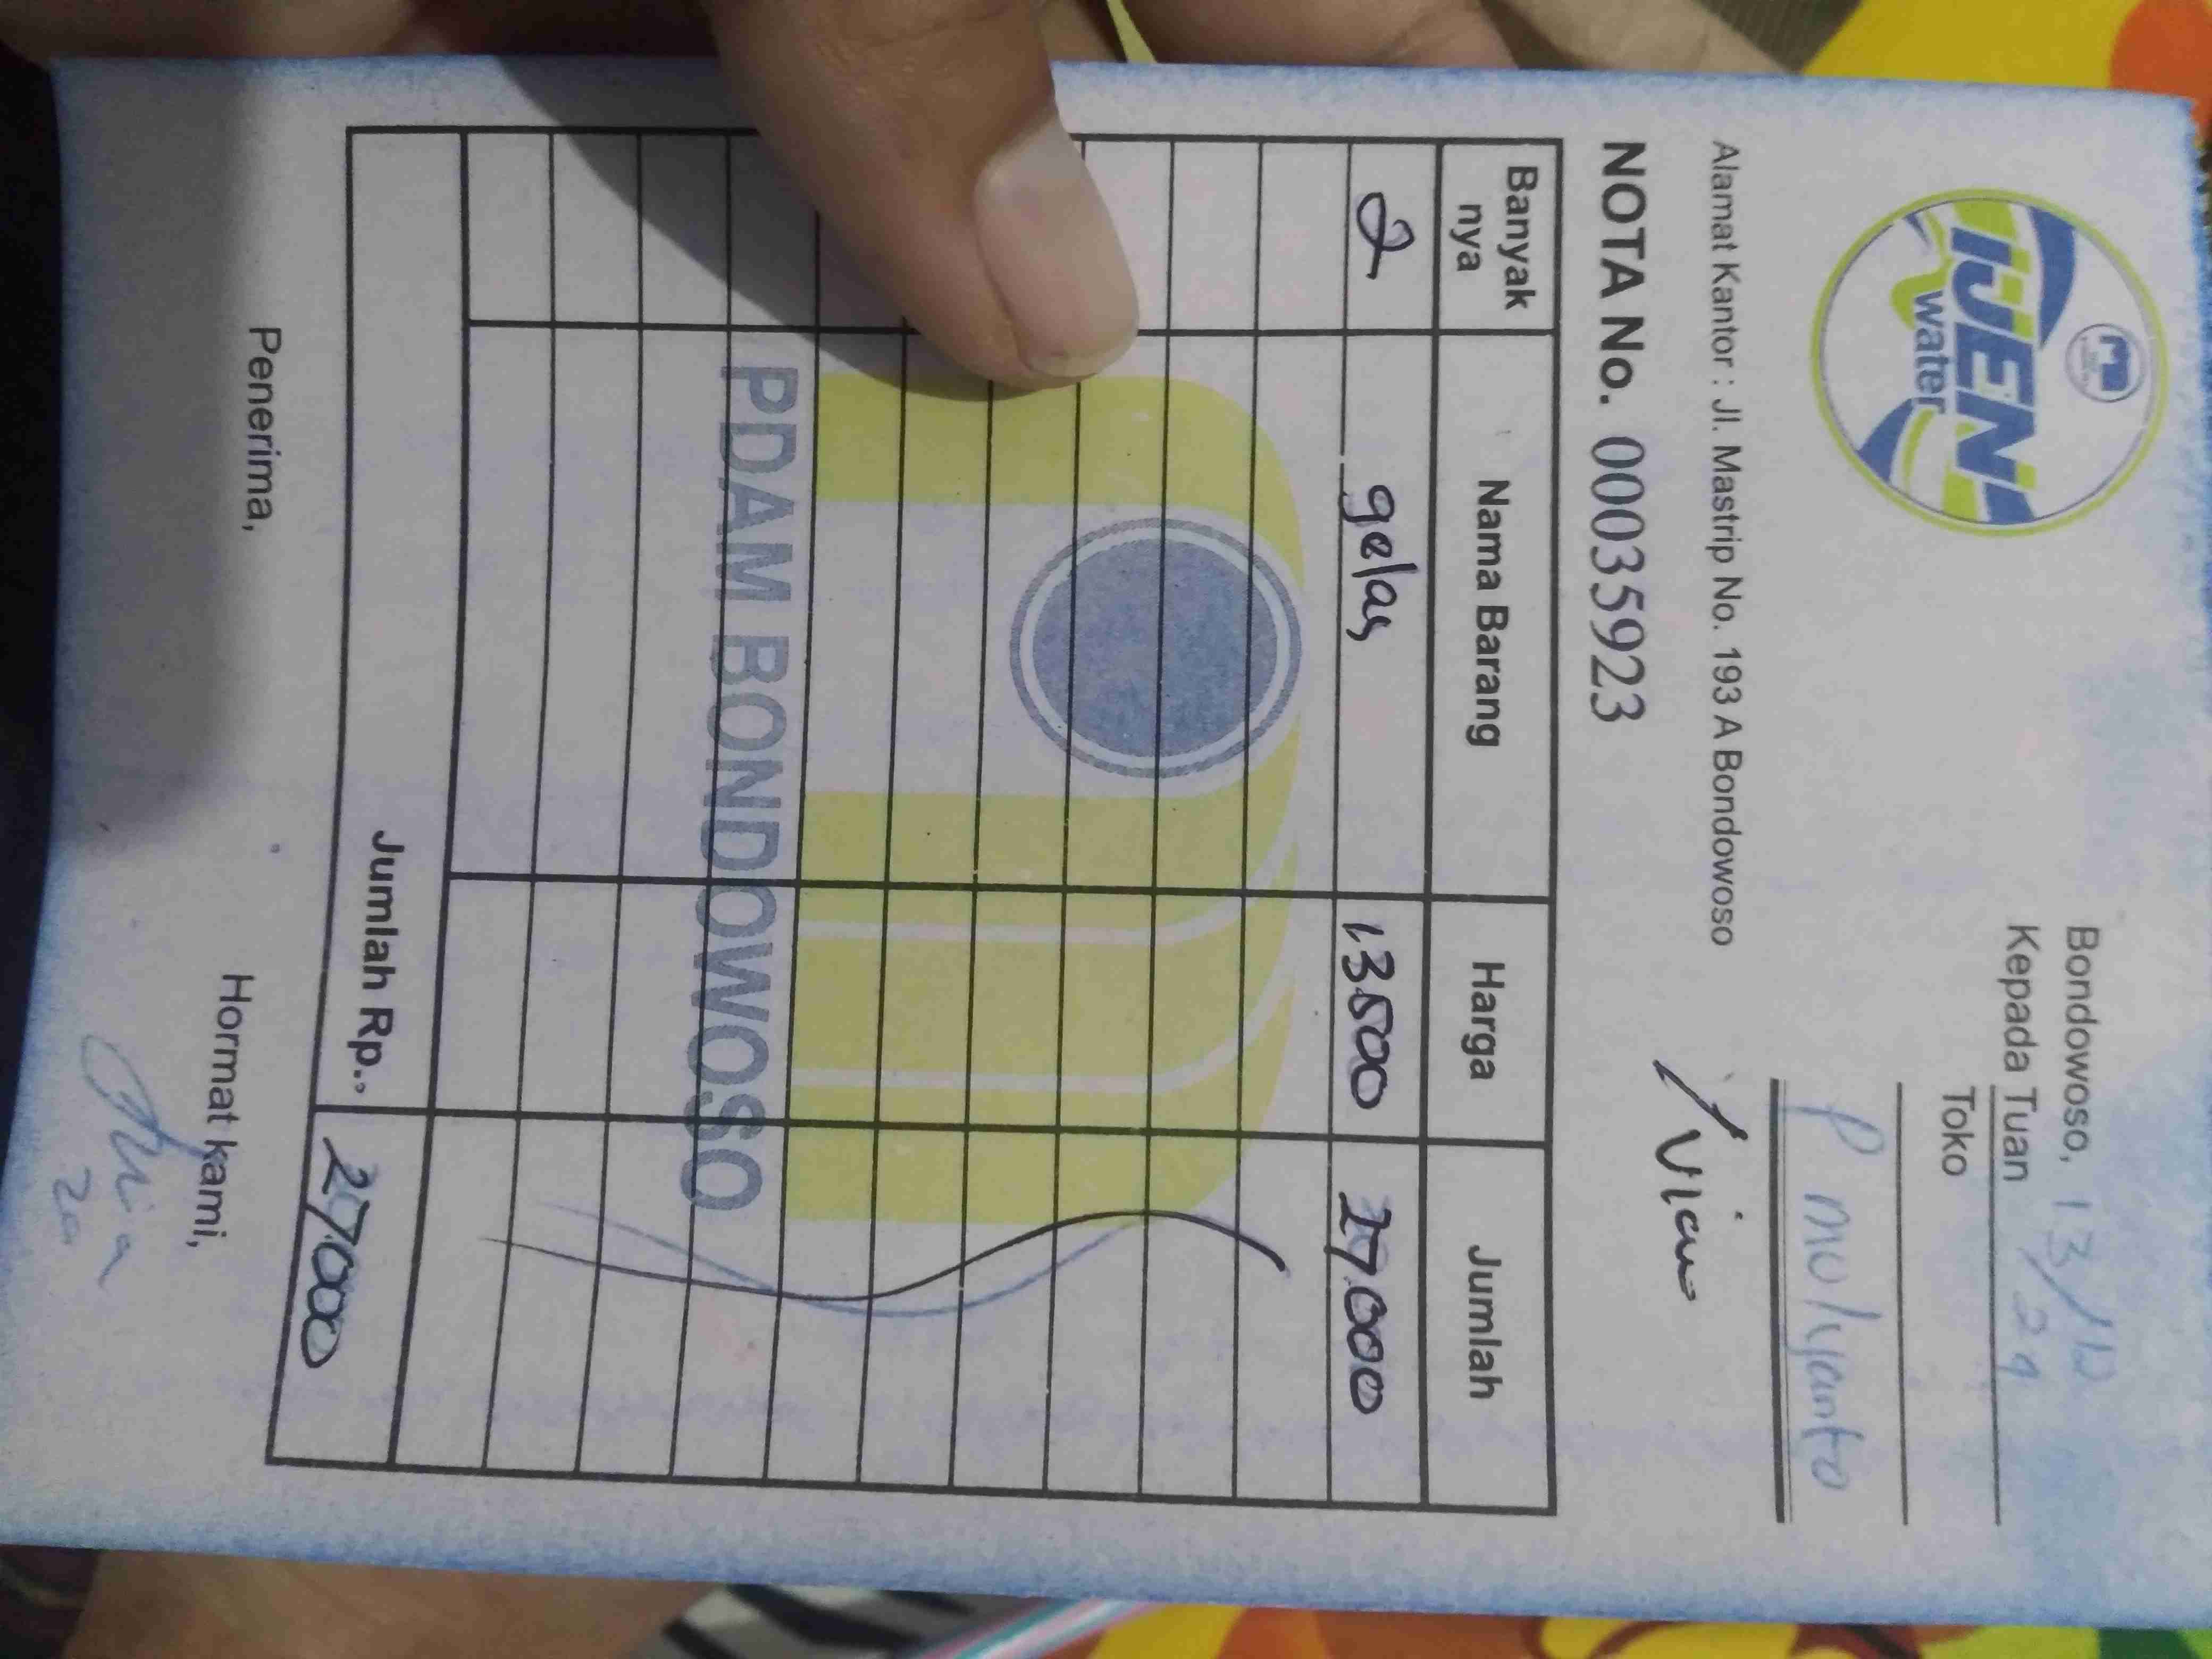 IJEN
water
Bondowoso, 13/12
Kepada Tuan 24
Toko
P mulyanto
Alamat Kantor : Jl. Mastrip No. 193 A Bondowoso
NOTA No. 00035923
Banyak nya Nama Barang Harga Jumlah
2 gelas 13500 27.000
PDAM BONDOWOSO
Jumlah Rp., 27.000
Penerima, Hormat kami,